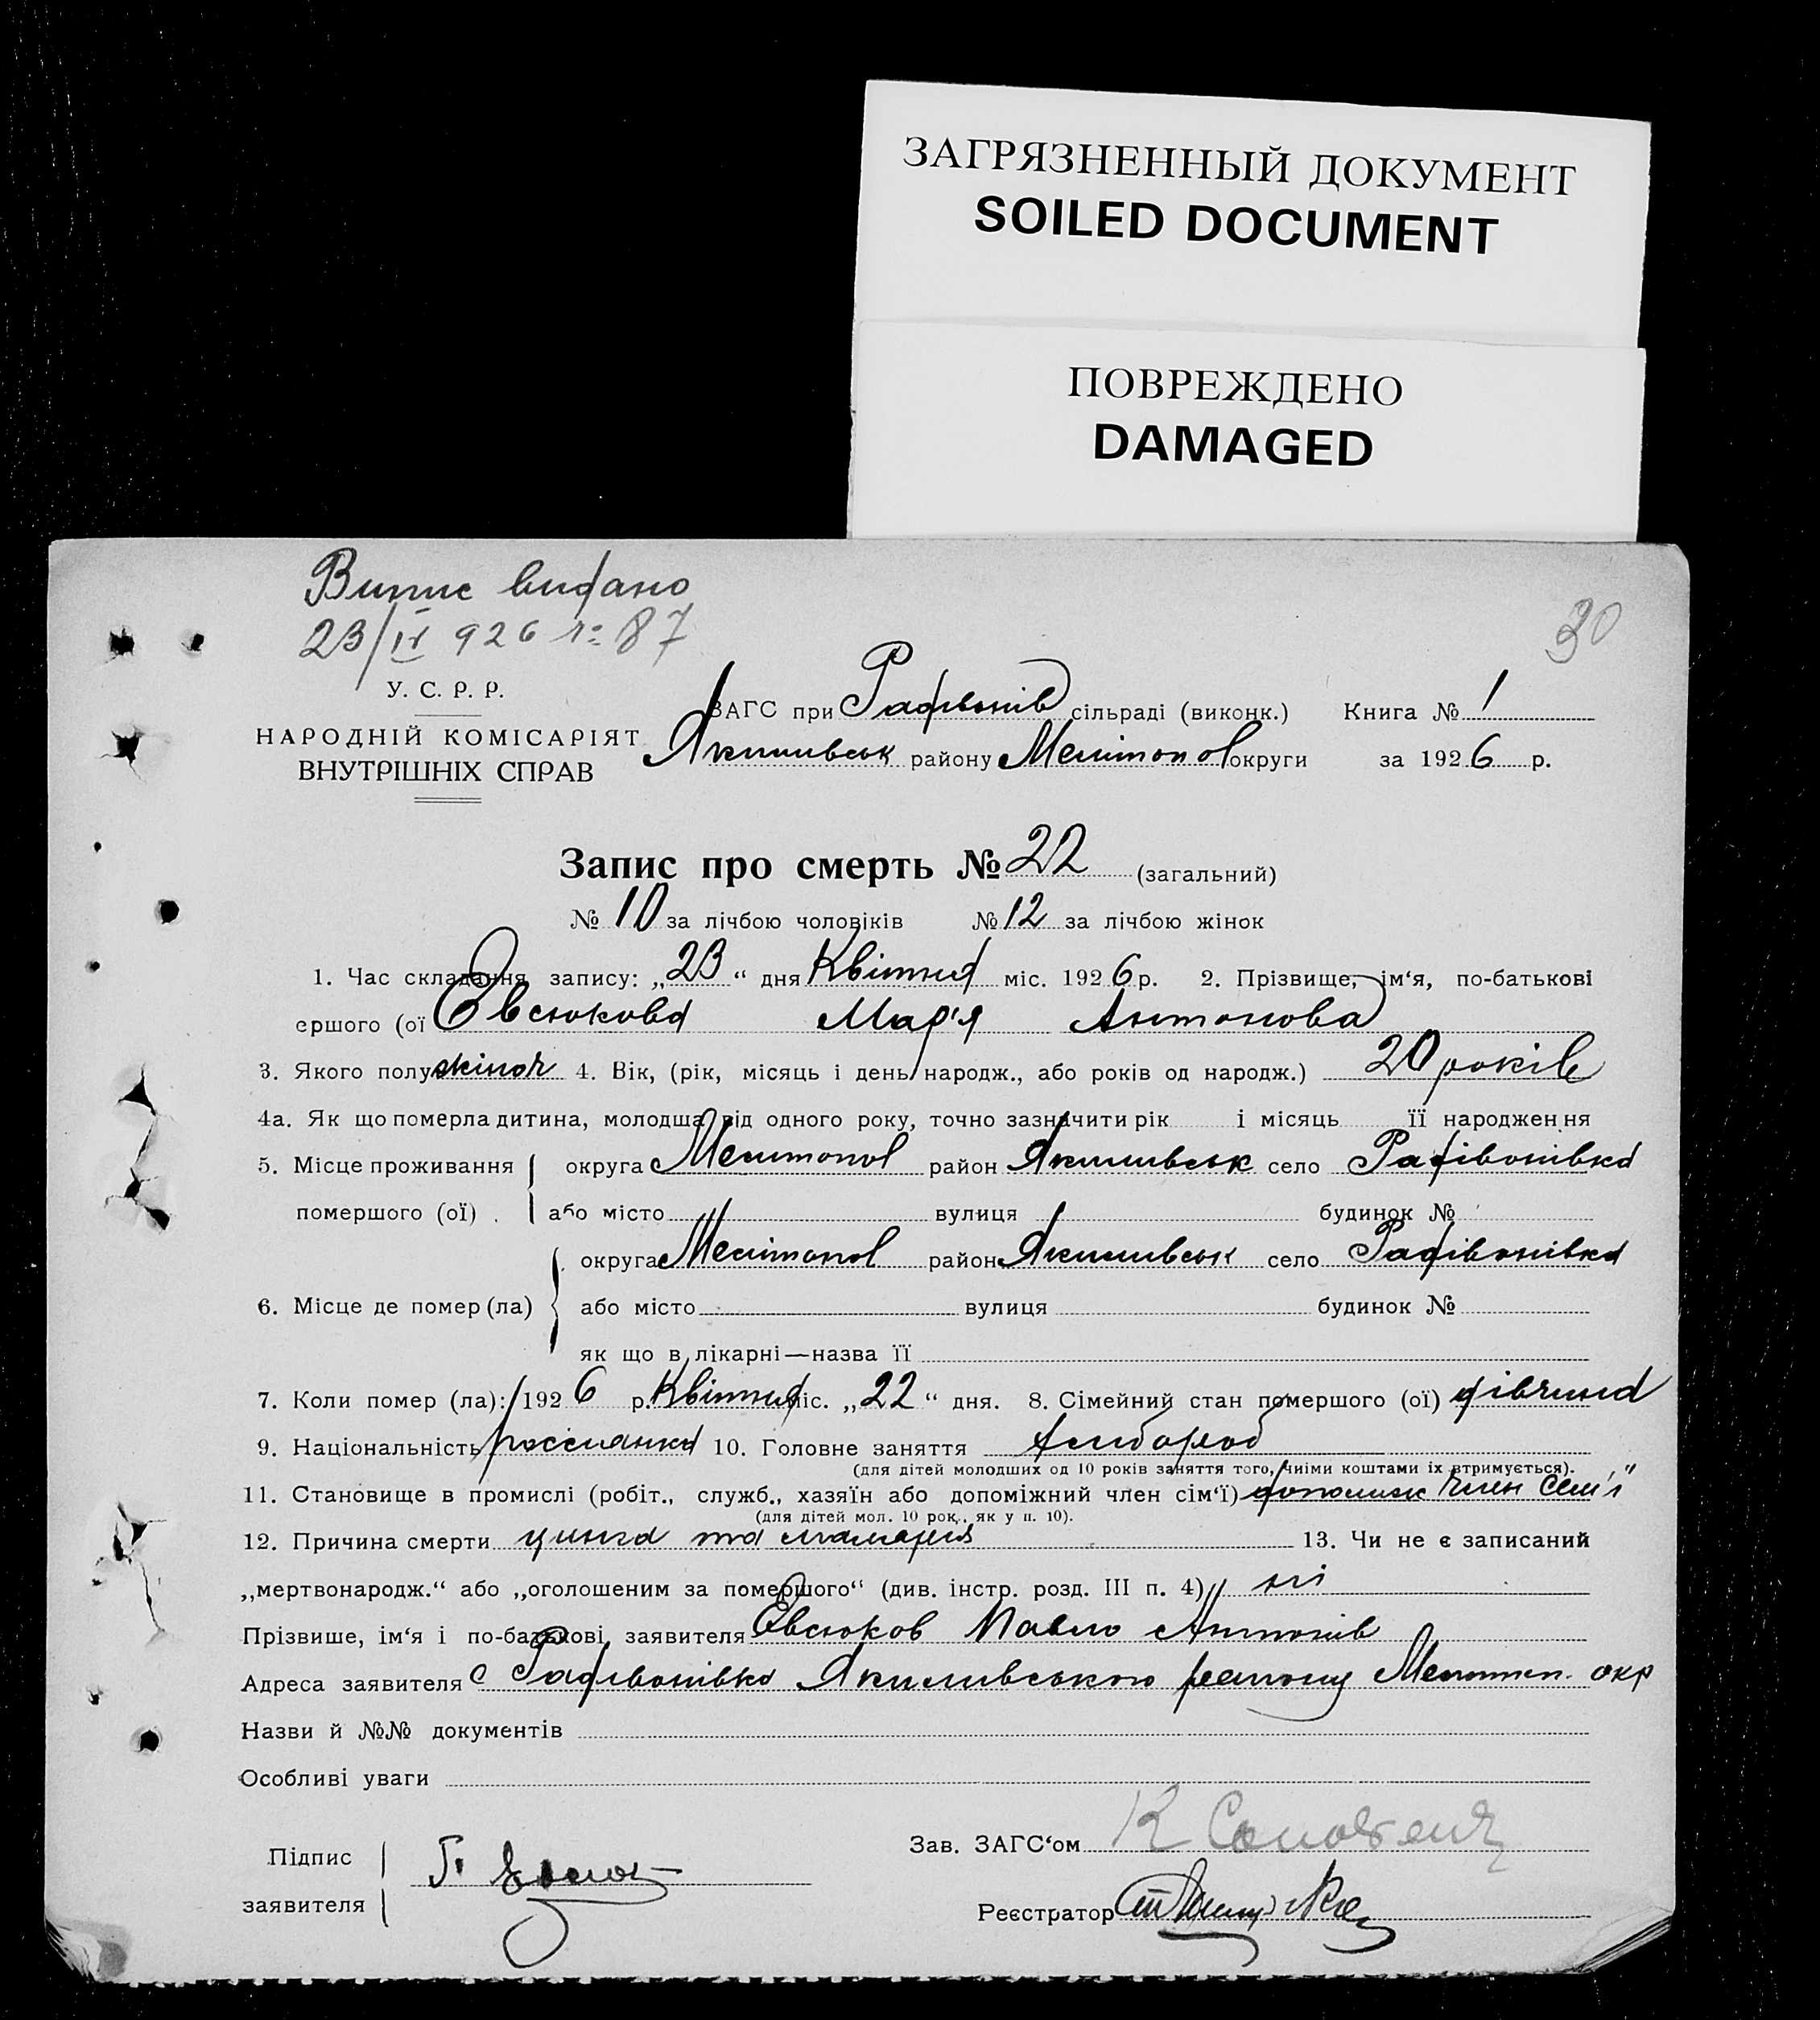 ЗАГРЯЗНЕННЫЙ ДОКУМЕНТ
SOILED DOCUMENT
ПОВРЕЖДЕНО
DAMAGED
Випис видано
23/IV 926 № 87
30
У. С. Р. Р.
НАРОДНІЙ КОМІСАРІЯТ
ВНУТРІШНІХ СПРАВ
ЗАГС при Радівонів сільраді (виконк.) Книга № 1
Якимівськ району Мелітопол округи за 1926 р.
Запис про смерть № 22 (загальний)
№ 10 за лічбою чоловіків № 12 за лічбою жінок
1. Час складання запису: „23“ дня Квітня міс. 1926 р. 2. Прізвище, ім‘я, по-батькові
ершого (ої Євсюкова Мар'я Антонова
3. Якого полу жіноч 4. Вік, (рік, місяць і день народж., або років од народж.) 20 років
4а. Як що померла дитина, молодша від одного року, точно зазначити рік і місяць її народження
5. Місце проживання округа Мелитопол район Якимивськ село Радівонівка
помершого (ої) . або місто вулиця будинок №
округа Мелітопол район Якимивськ село Радівонівка
6. Місце де помер (ла) або місто вулиця будинок №
як що в лікарні—назва її
7. Коли помер (ла): 1926 р. Квітня міс. „22“ дня. 8. Сімейний стан помершого (ої) дівчина
9. Національність россиянка 10. Головне заняття хлибороб
(для дітей молодших од 10 років заняття того, чиїми коштами їх втримується).
11. Становище в промислі (робіт., служб., хазяїн або допоміжний член сім‘ї) допоміжн член сем'ї
(для дітей мол. 10 рок., як у п. 10).
12. Причина смерти цинга та малария 13. Чи не є записаний
„мертвонародж.“ або „оголошеним за помершого“ (див. інстр. розд. III п. 4) ні
Прізвише, ім‘я і по-батькові заявителя Євсюков Павло Антонів
Адреса заявителя с Радивонівка Якимивського району Мелитоп. окр
Назви й №№ документів
Особливі уваги
Підпис
заявителя
Зав. ЗАГС‘ом К
Реєстратор